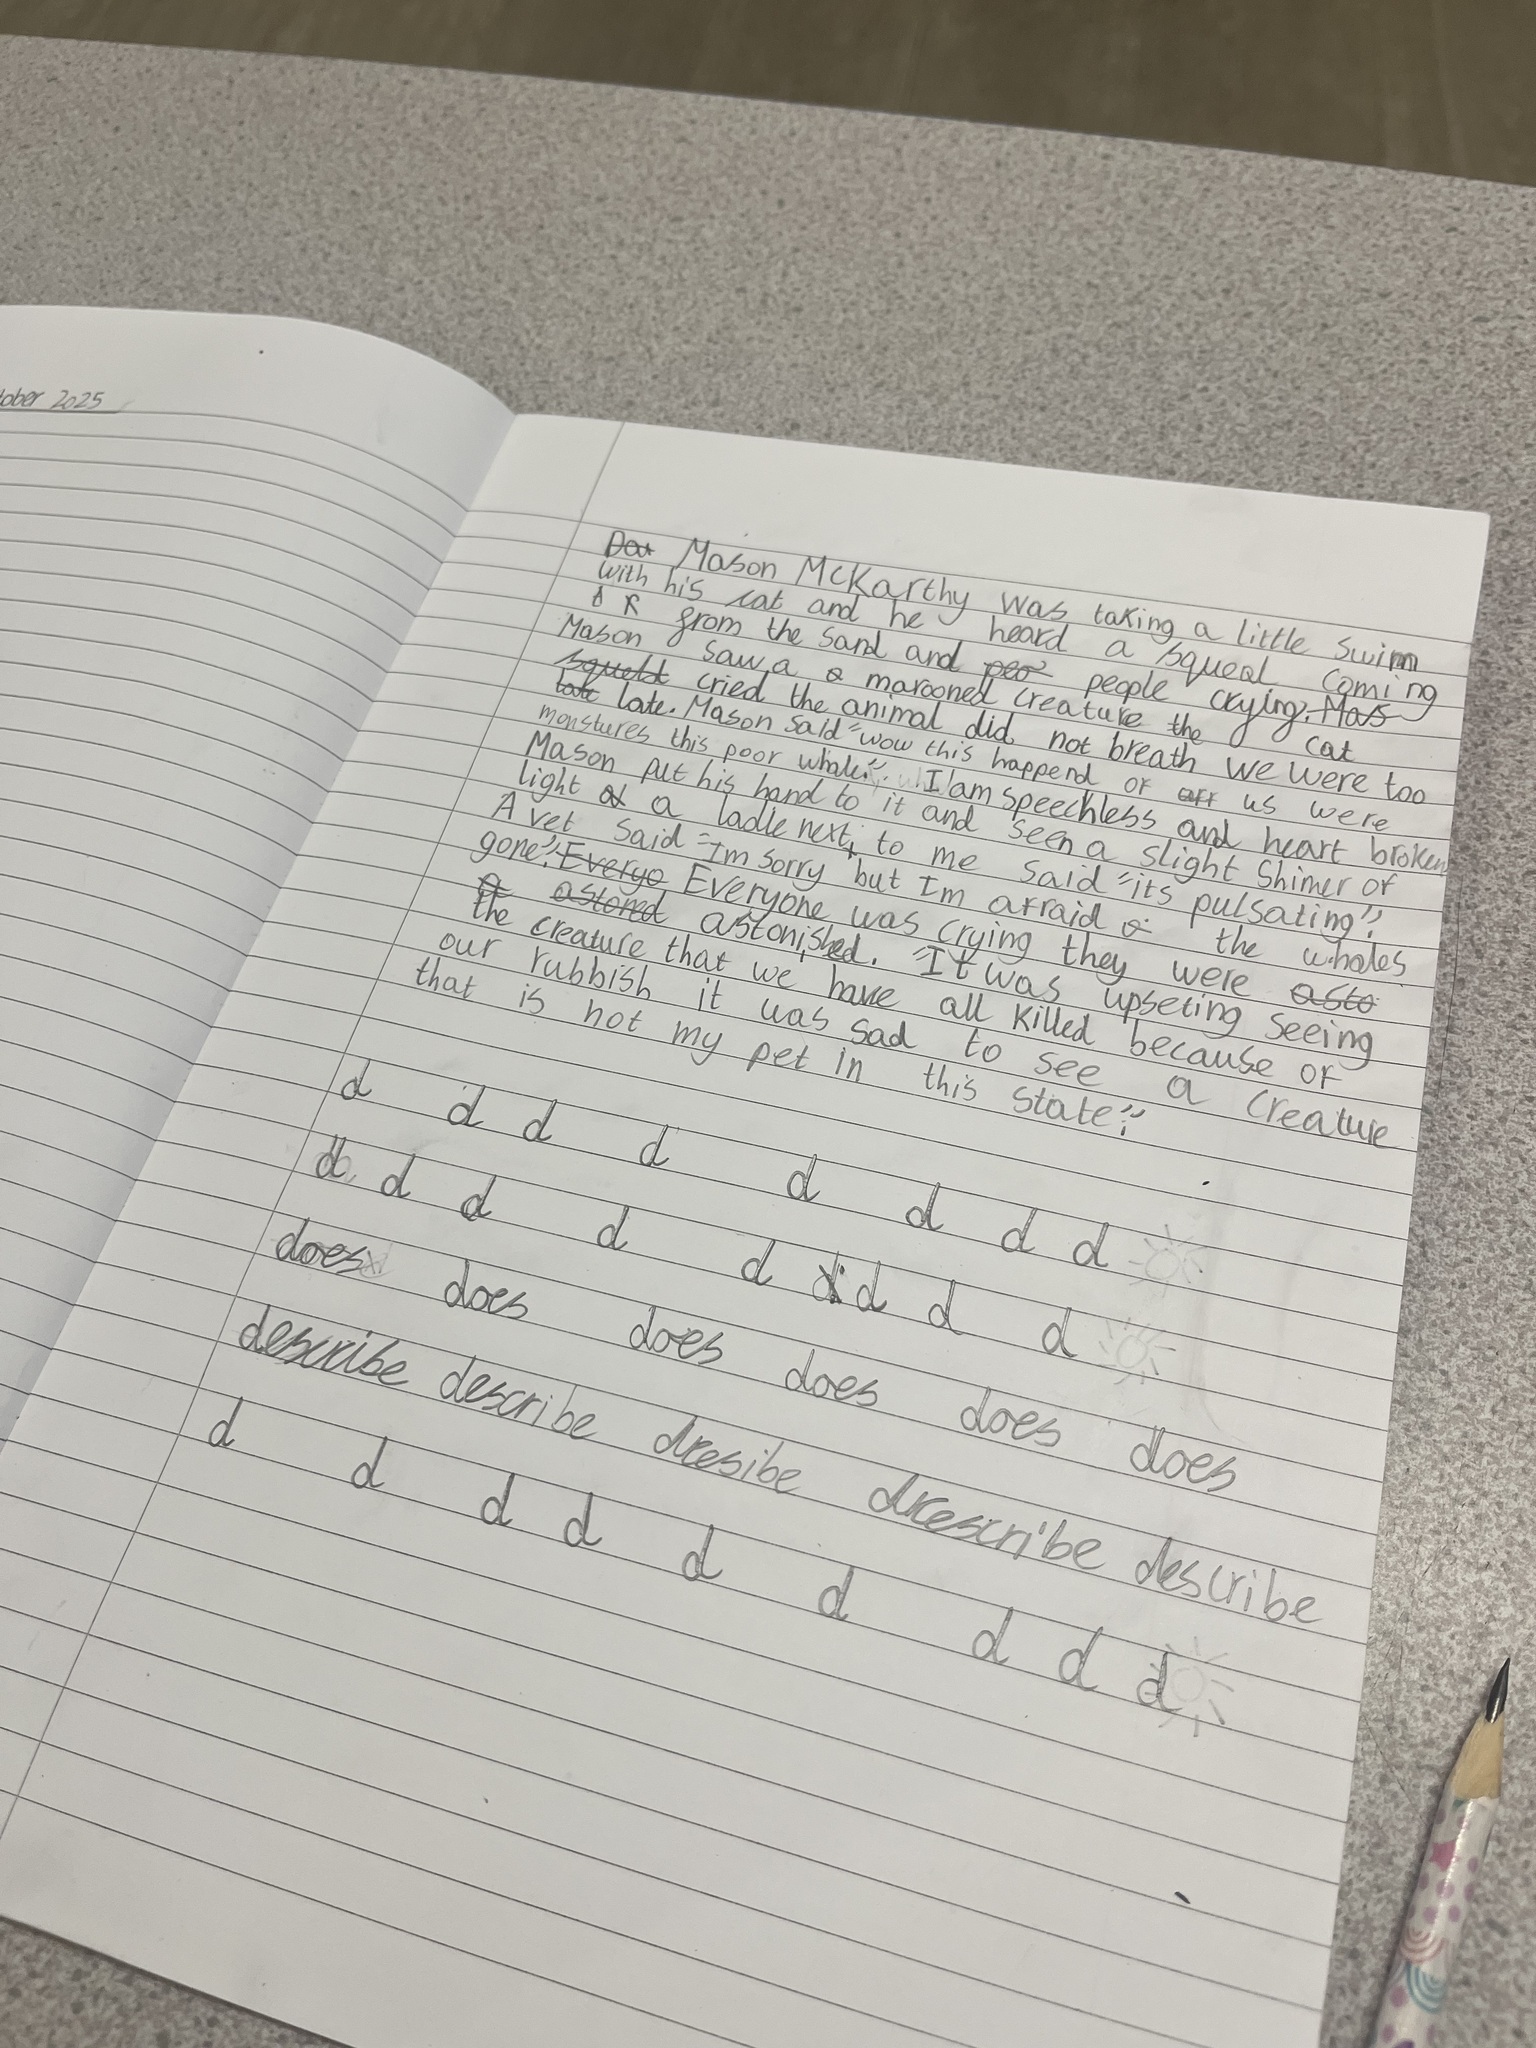 ober 2025
Mason McKarthy was taking a little swim
with his cat and he heard a squeal coming
from the sand and people crying.
Mason saw a marooned creature the cat
cried the animal did not breath we were too
late. Mason said "wow this happend of us were
monstures this poor whale". I am speechless and heart broken
Mason put his hand to it and seen a slight shimer of
light a ladle next to me said "its pulsating".
A vet said "Im sorry but Im afraid the whales
gone". Everyone was crying they were
astonished. "It was upseting seeing
the creature that we have all killed because of
our rubbish it was sad to see a creature
that is not my pet in this state".
d d d d d d d d
d d d d d d d d
does does does does does does
describe describe drcesibe drcescribe describe
d d d d d d d d d